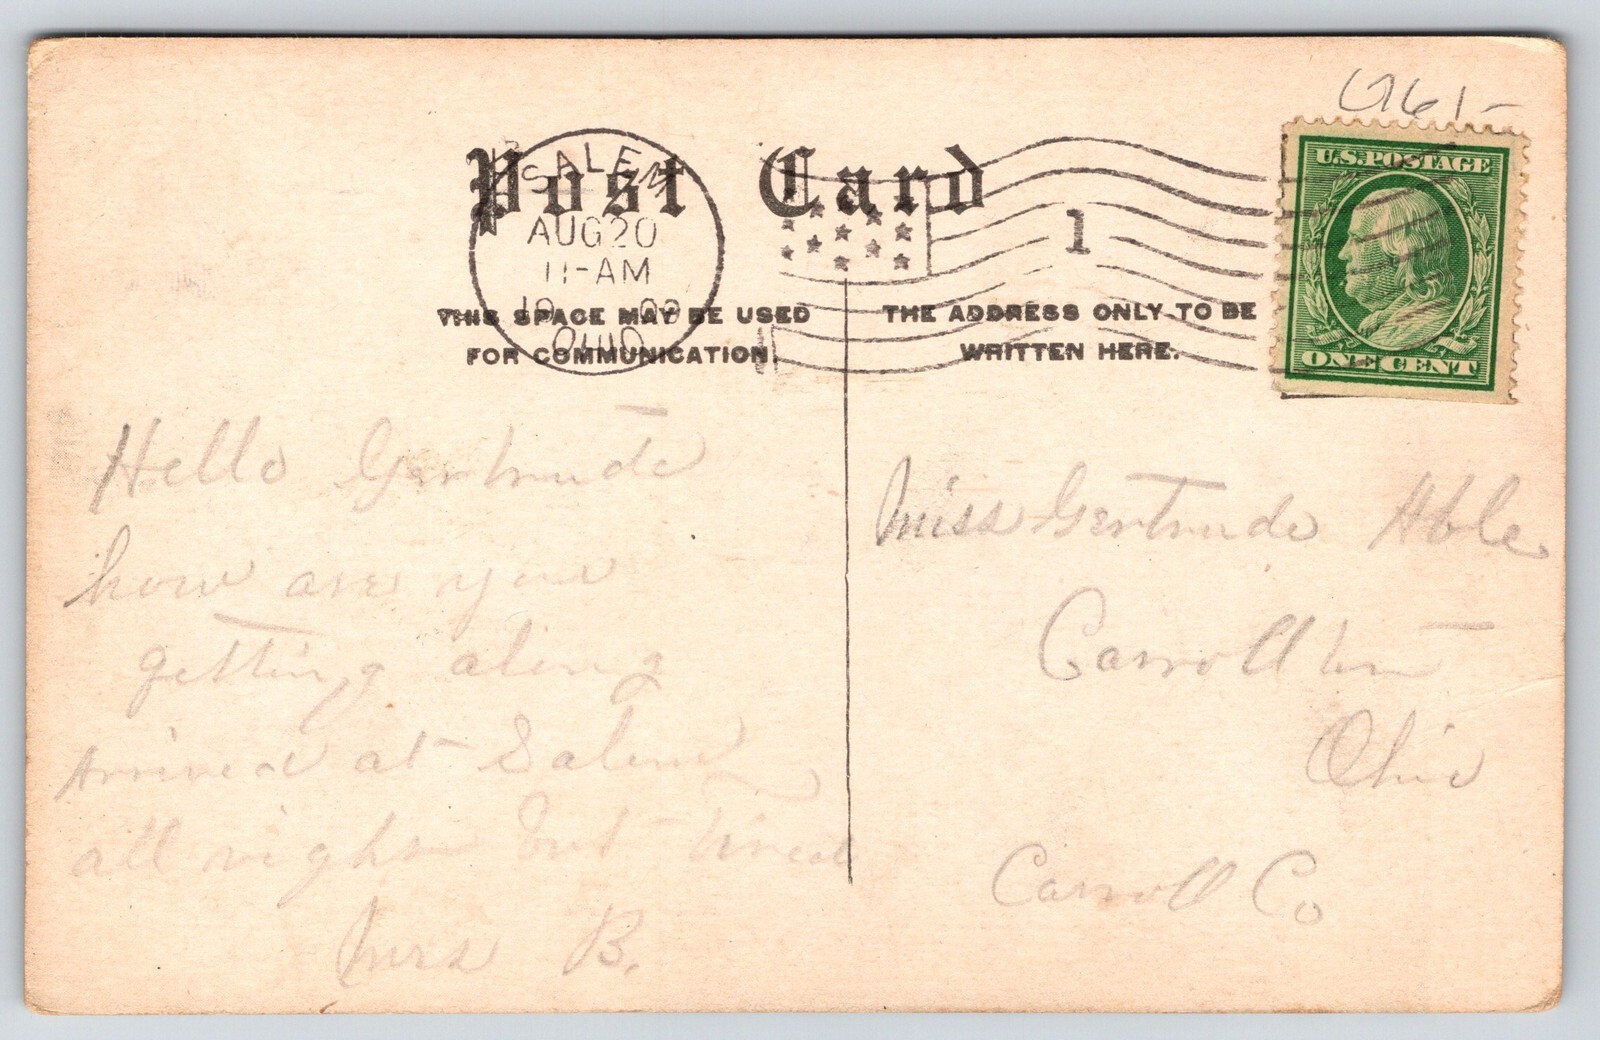 9761-
Post Card
SALEM
AUG 20
11-AM
1909
OHIO
1
U.S. POSTAGE
ONE CENT
THIS SPACE MAY BE USED
FOR COMMUNICATION.
THE ADDRESS ONLY TO BE
WRITTEN HERE.
Hello Gertrude
how are you
getting along
arrived at Salem
all right but tired
Mrs B.
Miss Gertrude Able
Carrollton
Ohio
Carroll Co